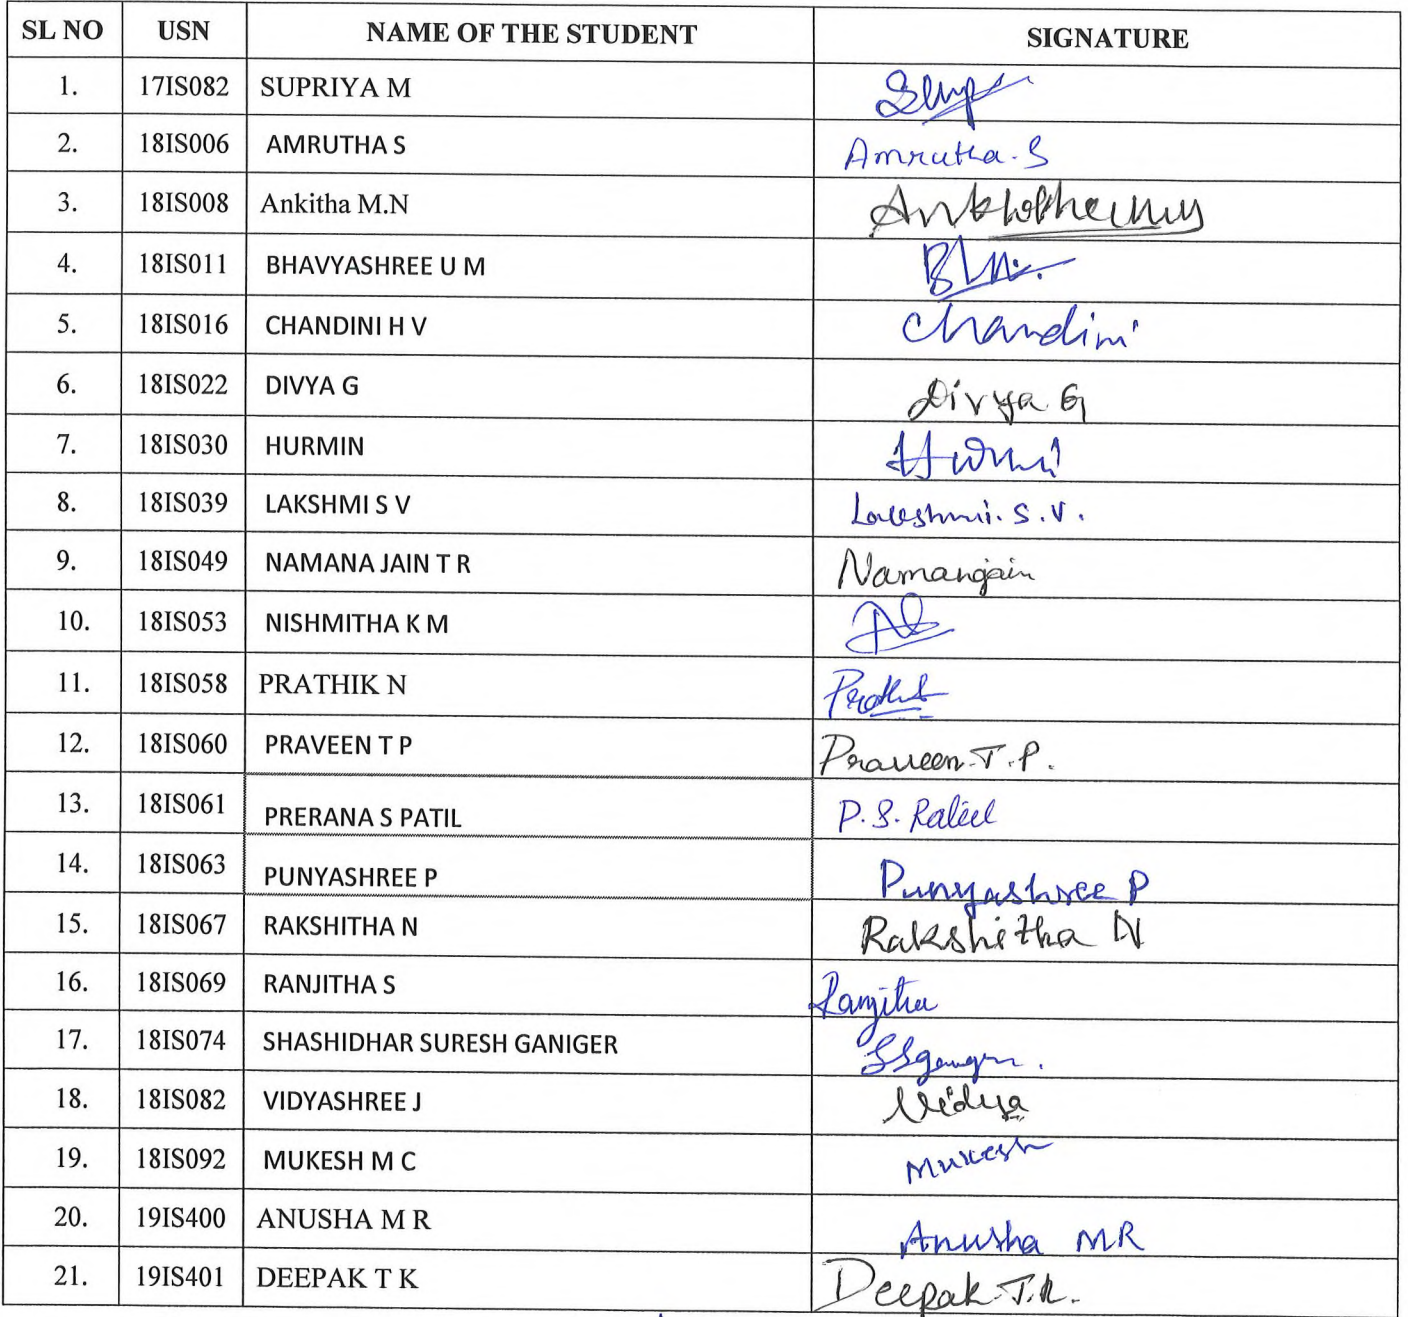 SL NO USN NAME OF THE STUDENT SIGNATURE
1. 17IS082 SUPRIYA M
2. 18IS006 AMRUTHA S Amrutha.S
3. 18IS008 Ankitha M.N
4. 18IS011 BHAVYASHREE U M
5. 18IS016 CHANDINI H V Chandini
6. 18IS022 DIVYA G Divya G
7. 18IS030 HURMIN
8. 18IS039 LAKSHMI S V Lakshmi. S. V.
9. 18IS049 NAMANA JAIN T R Namanajain
10. 18IS053 NISHMITHA K M
11. 18IS058 PRATHIK N
12. 18IS060 PRAVEEN T P Praveen.T.P.
13. 18IS061 PRERANA S PATIL P.S.
14. 18IS063 PUNYASHREE P Punyashree P
15. 18IS067 RAKSHITHA N Rakshitha N
16. 18IS069 RANJITHA S Ranjitha
17. 18IS074 SHASHIDHAR SURESH GANIGER
18. 18IS082 VIDYASHREE J Vidya
19. 18IS092 MUKESH M C Mukesh
20. 19IS400 ANUSHA M R Anusha MR
21. 19IS401 DEEPAK T K Deepak.T.K.